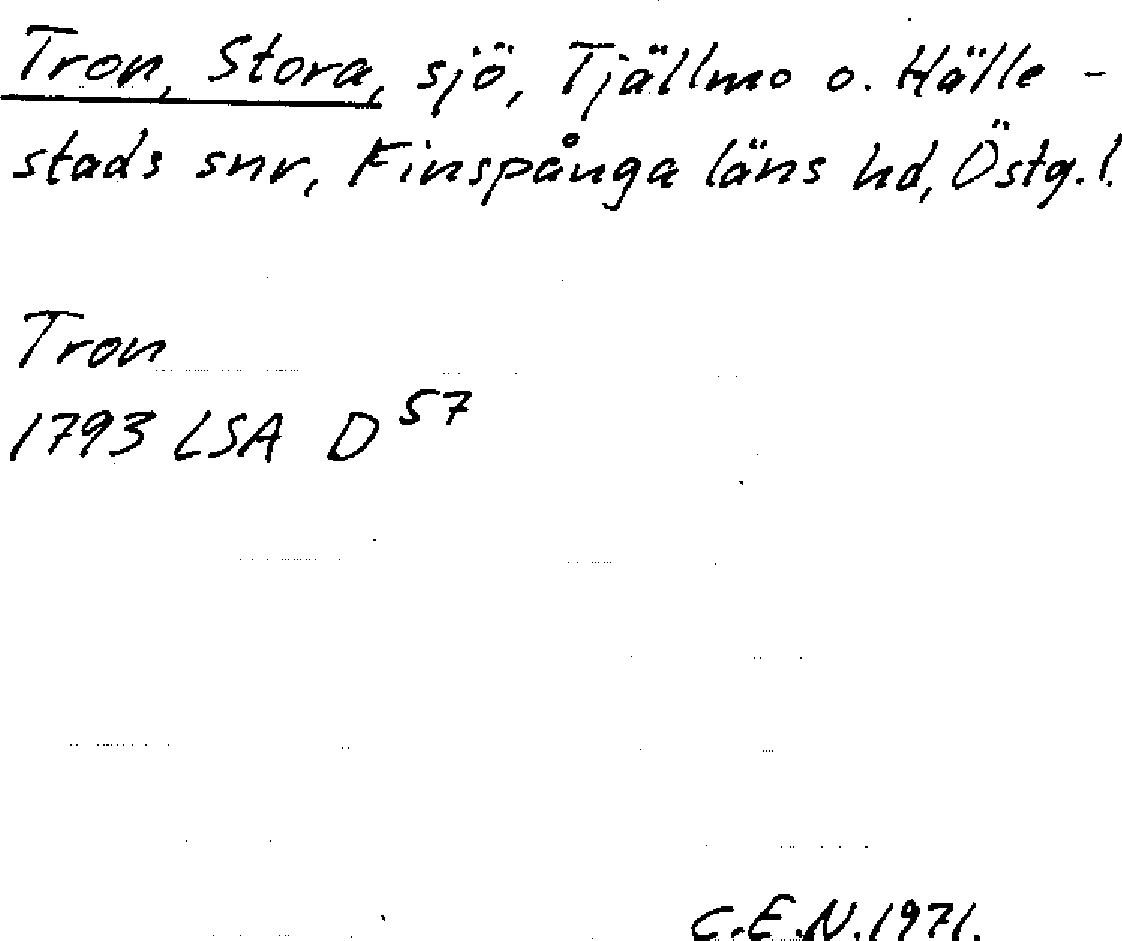 Tron, Stora, sjö, Tjällmo o. Hälle-
stads snr, Finspånga läns hd, Östg.l.
Tron
1793 LSA D 57
C.E.N. 1971.